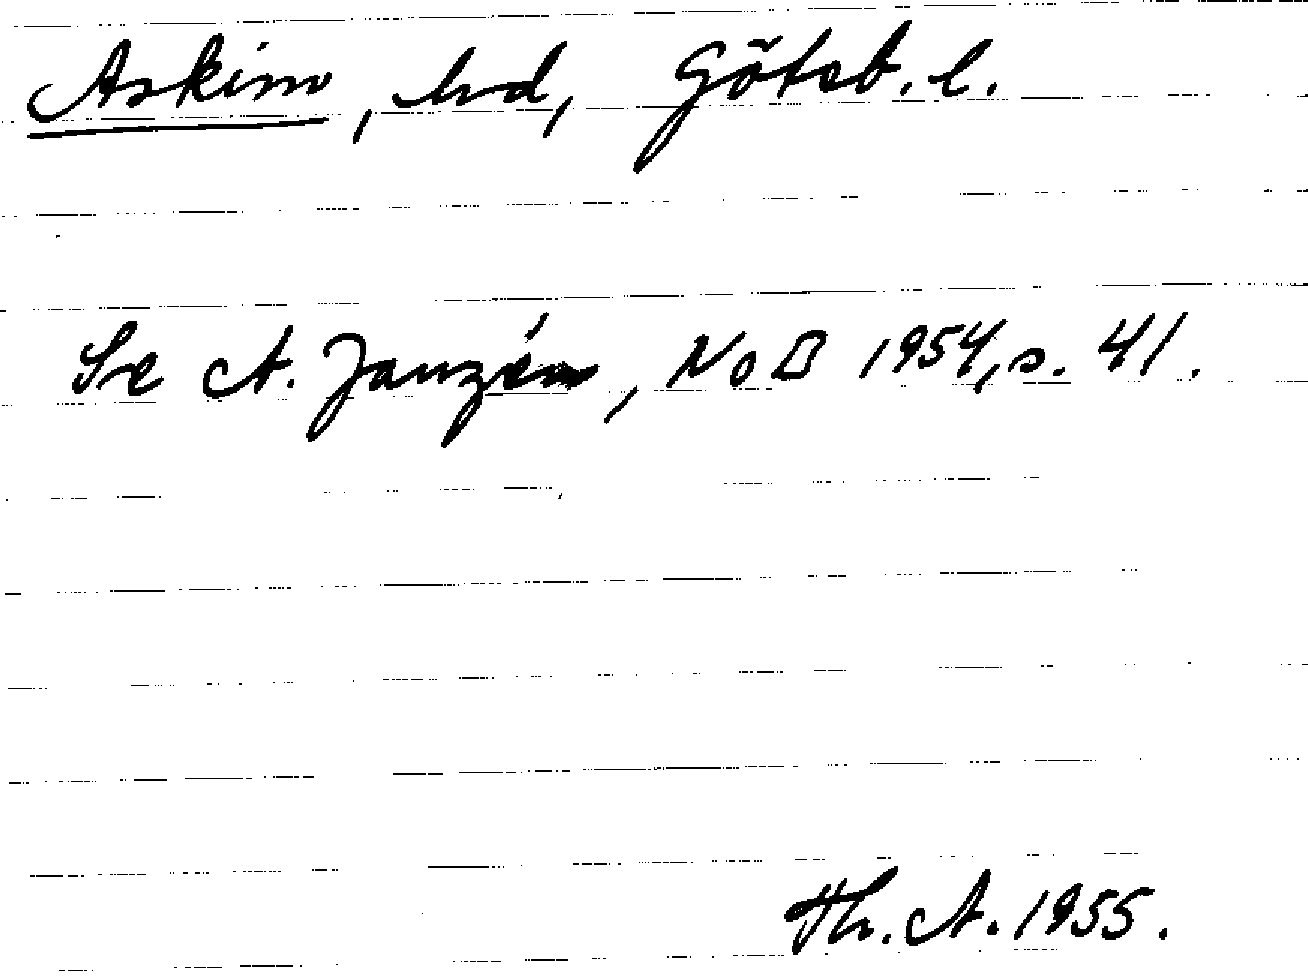 Askim, hrd, Göteb. l.
Se A. Janzén, NoB 1954, s. 41.
Th. A. 1955.